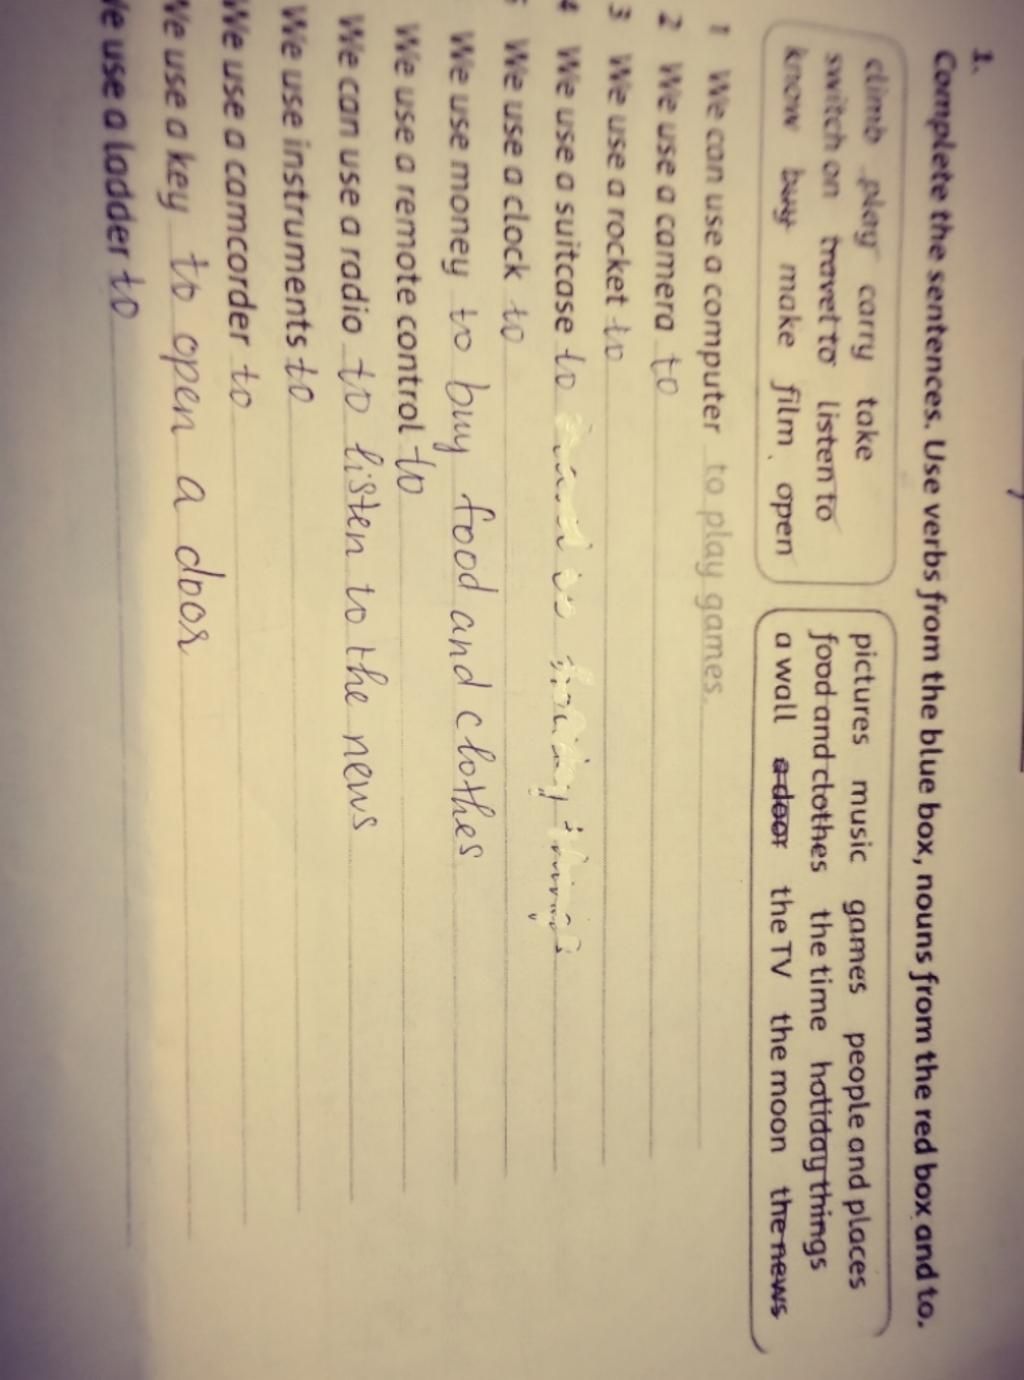 1.
Complete the sentences. Use verbs from the blue box, nouns from the red box and to.
climb play carry take
switch on travel to listen to
know buy make film open
pictures music games people and places
food and clothes the time holiday things
a wall a door the TV the moon the news
1 We can use a computer to play games.
2 We use a camera to
3 We use a rocket to
4 We use a suitcase to
We use a clock to
We use money to buy food and clothes
We use a remote control to
We can use a radio to listen to the news
We use instruments to
We use a camcorder to
We use a key to open a door
We use a ladder to